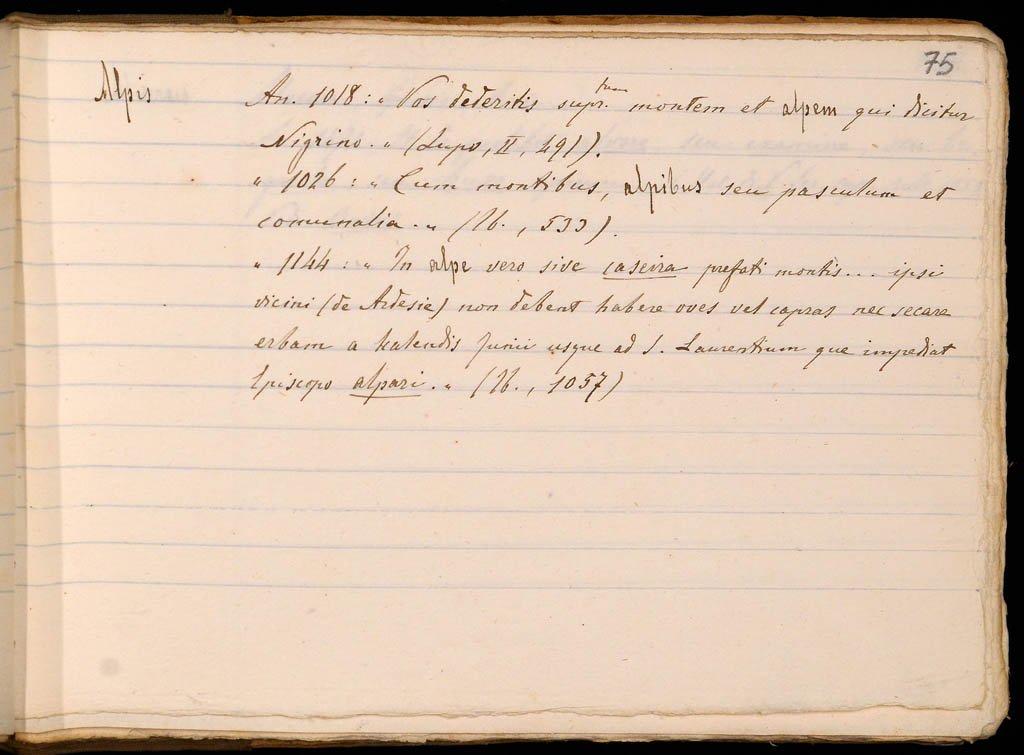 75
Alpis An. 1018 : „ Vos dederitis supr.tum montem et alpem qui dicitur
Nigrino. „ (Lupo, II, 491).
„ 1026 : „ Cum montibus, alpibus seu pasculum et
comunalia. „ (Ib., 533).
„ 1144 : „ In alpe vero sive caseira prefati montis... ipsi
vicini (de Ardesie) non debent habere oves vel capras nec secare
erbam a kalendis Junii usque ad S. Laurentium que impediat
Episcopo alpari. „ (Ib., 1057)